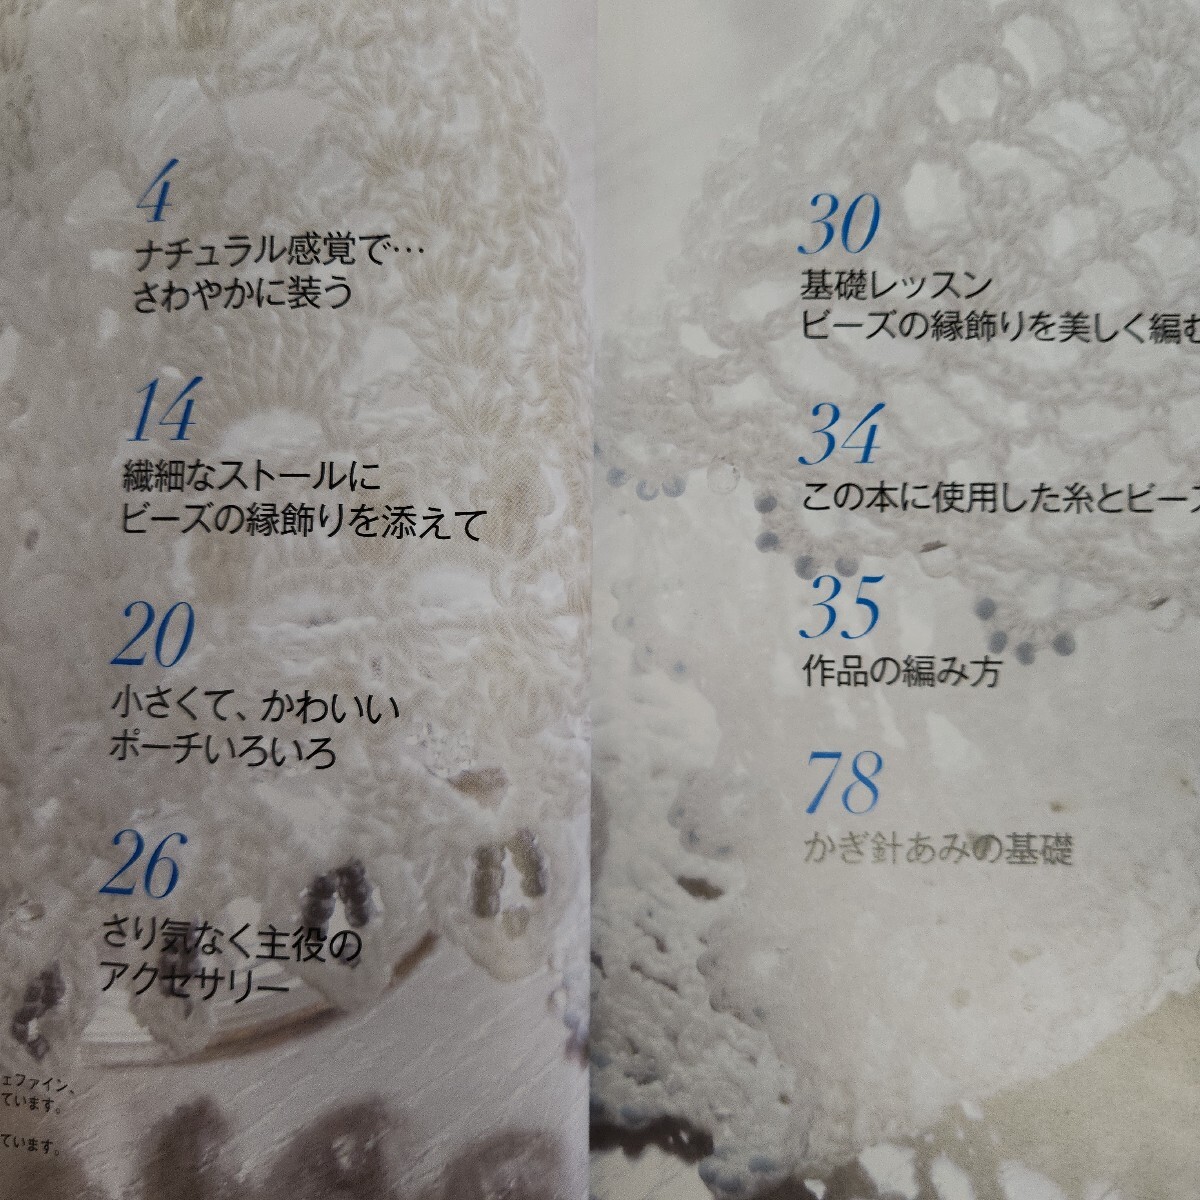 4
ナチュラル感覚で…
さわやかに装う
14
繊細なストールに
ビーズの縁飾りを添えて
20
小さくて、かわいい
ポーチいろいろ
26
さり気なく主役の
アクセサリー
ェファイン、
ています。
ています。
30
基礎レッスン
ビーズの縁飾りを美しく編む
34
この本に使用した糸とビーズ
35
作品の編み方
78
かぎ針あみの基礎